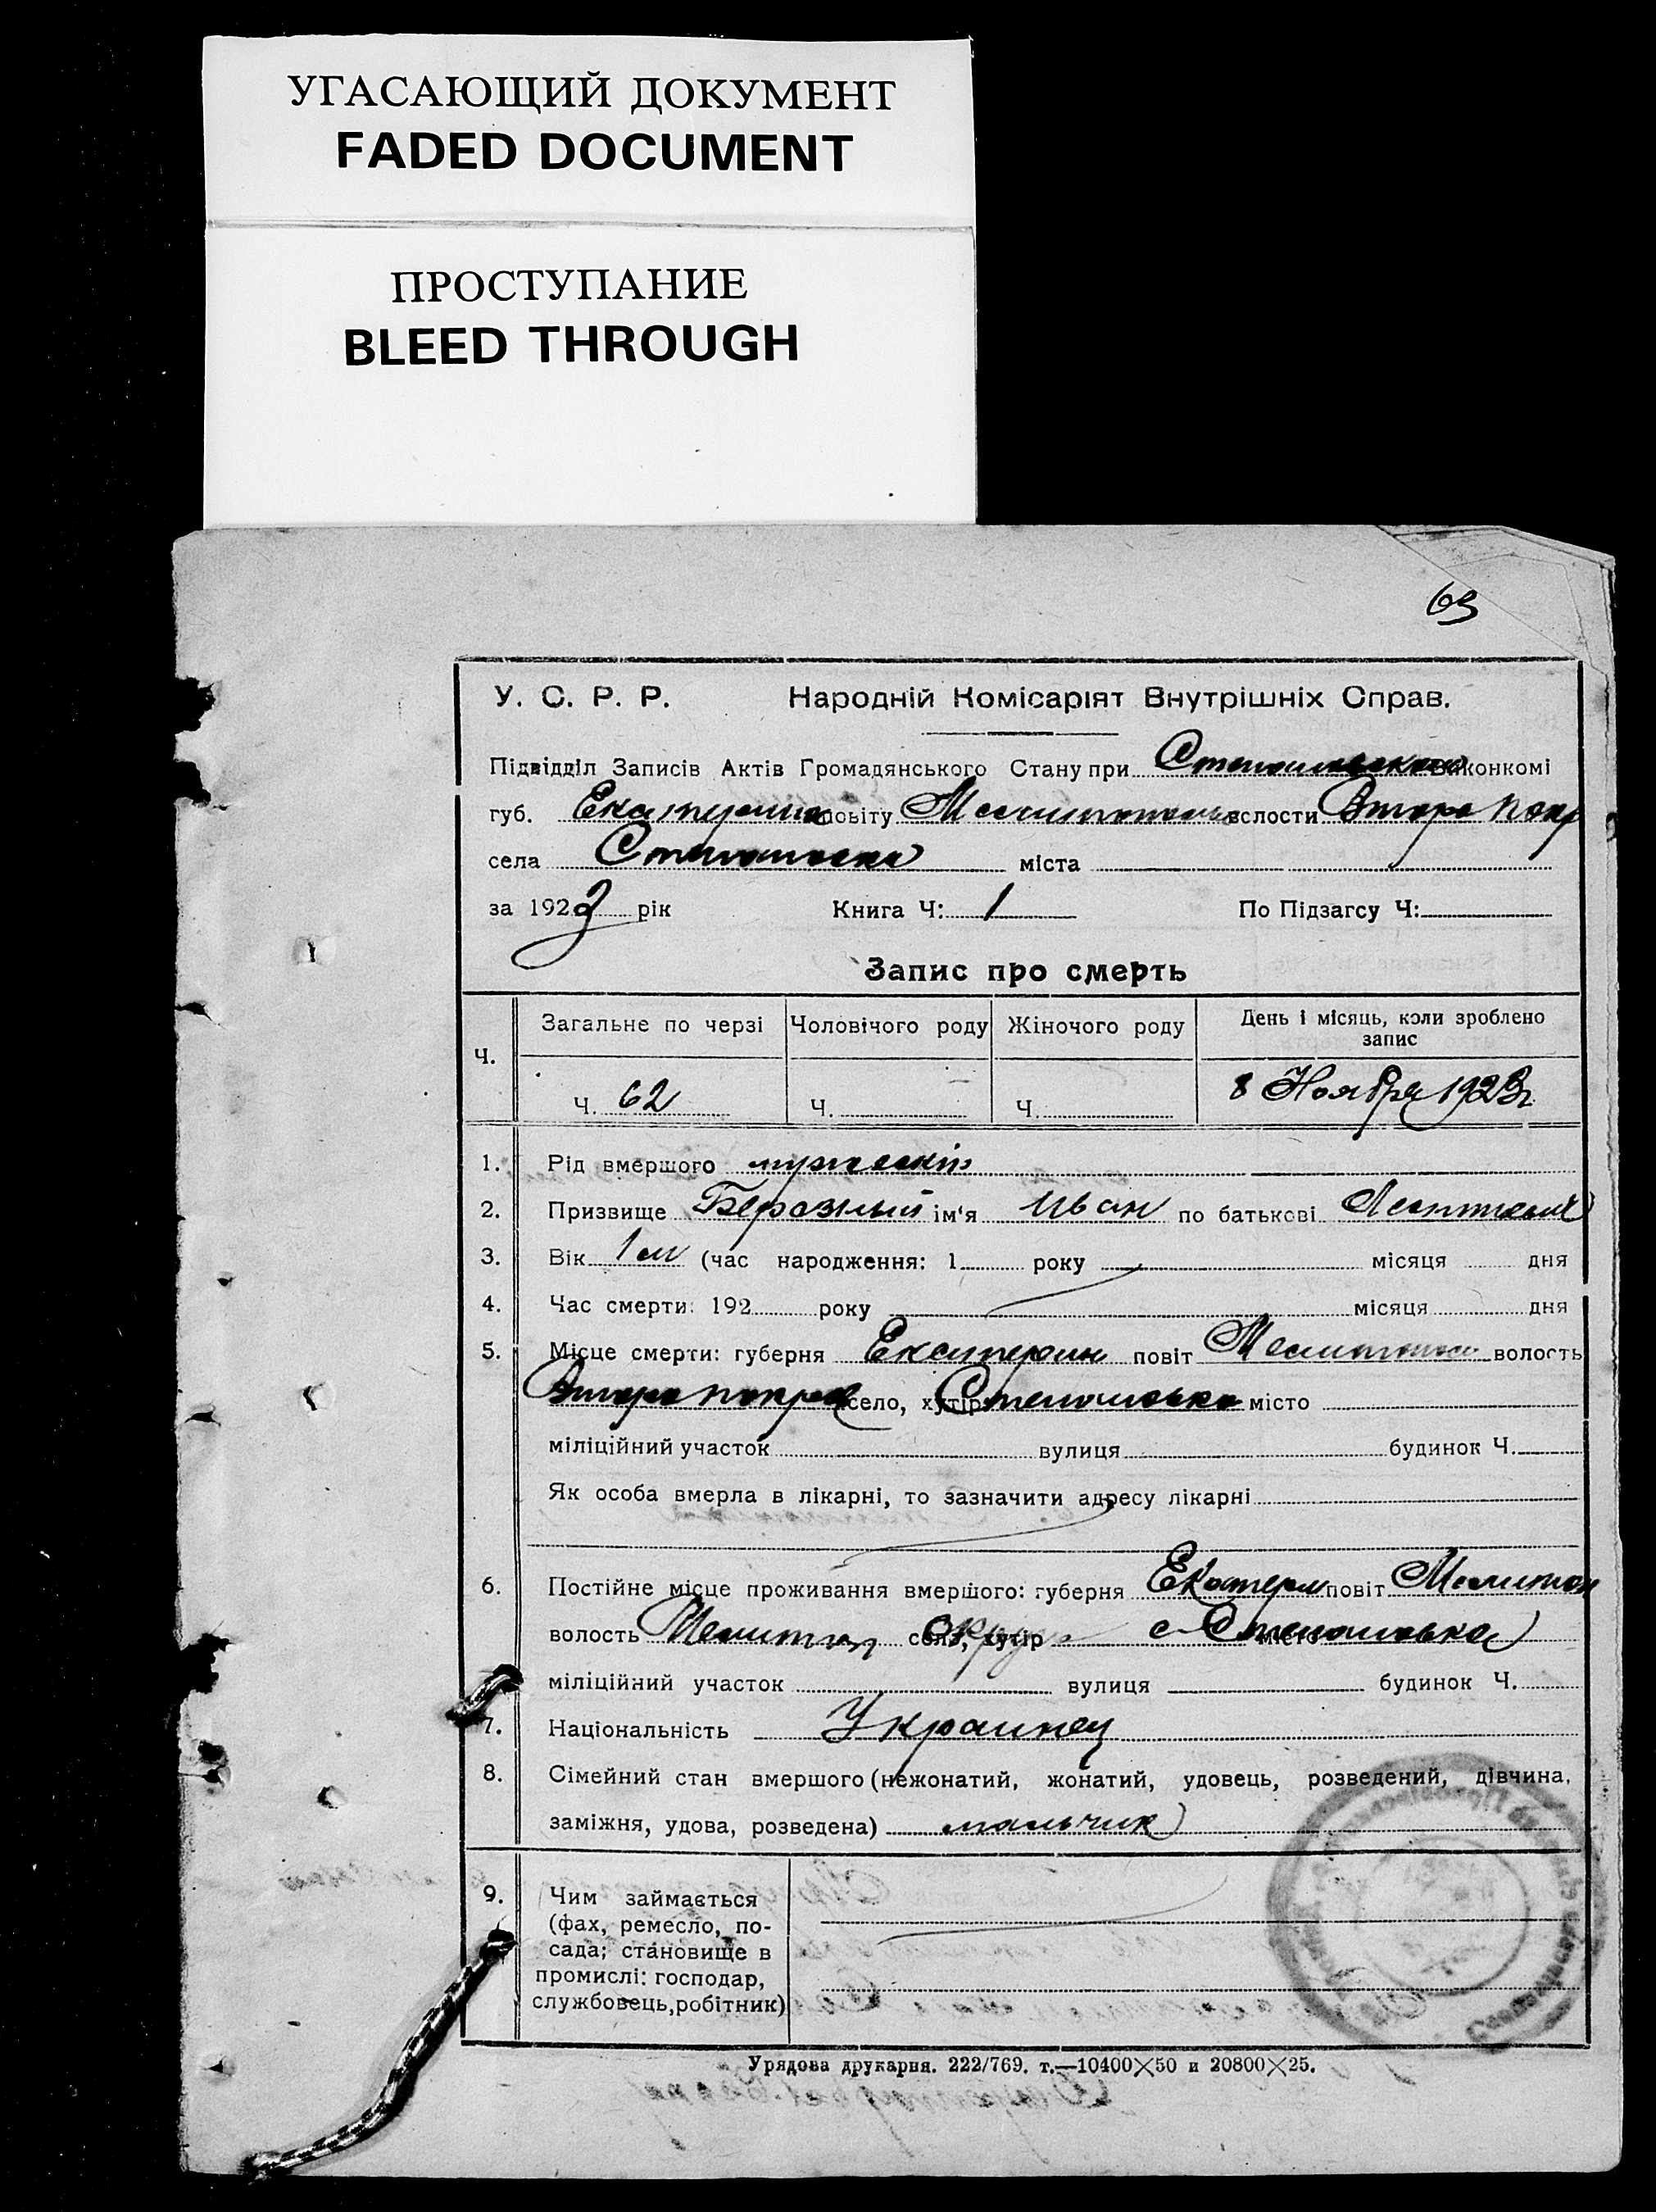 УГАСАЮЩИЙ ДОКУМЕНТ
FADED DOCUMENT
ПРОСТУПАНИЕ
BLEED THROUGH
63
У. С. Р. Р. Народній Комісаріят Внутрішніх Справ.
Підвідділ Записів Актів Громадянського Стану при виконкомі
губ. Екатерино повіту волости Второ покр
села міста
за 1923 рік Книга Ч: 1 По Підзагсу Ч:
Запис про смерть
Ч. Загальне по черзі Чоловічого роду Жіночого роду День і місяць, коли зроблено
запис
Ч. 62 Ч. Ч. 8 Ноября 1923 г.
1. Рід вмершого мужескій
2. Призвище ім'я Иван по батькові
3. Вік 1 м (час народження: 1 року місяця дня
4. Час смерти: 192 року місяця дня
5. Місце смерти: губерня Екатерин повіт волость
Второ покров село, хутір місто
міліційний участок вулиця будинок Ч.
Як особа вмерла в лікарні, то зазначити адресу лікарні
6. Постійне місце проживання вмершого: губерня Екатерин повіт Мелитоп
волость село, хутір с місто
міліційний участок вулиця будинок Ч.
7. Національність Украинец
8. Сімейний стан вмершого (нежонатий, жонатий, удовець, розведений, дівчина,
заміжня, удова, розведена) мальчик
9. Чим займається
(фах, ремесло, по-
сада; становище в
промислі: господар,
службовець, робітник)
Урядова друкарня. 222/769. т.—10400×50 и 20800×25.